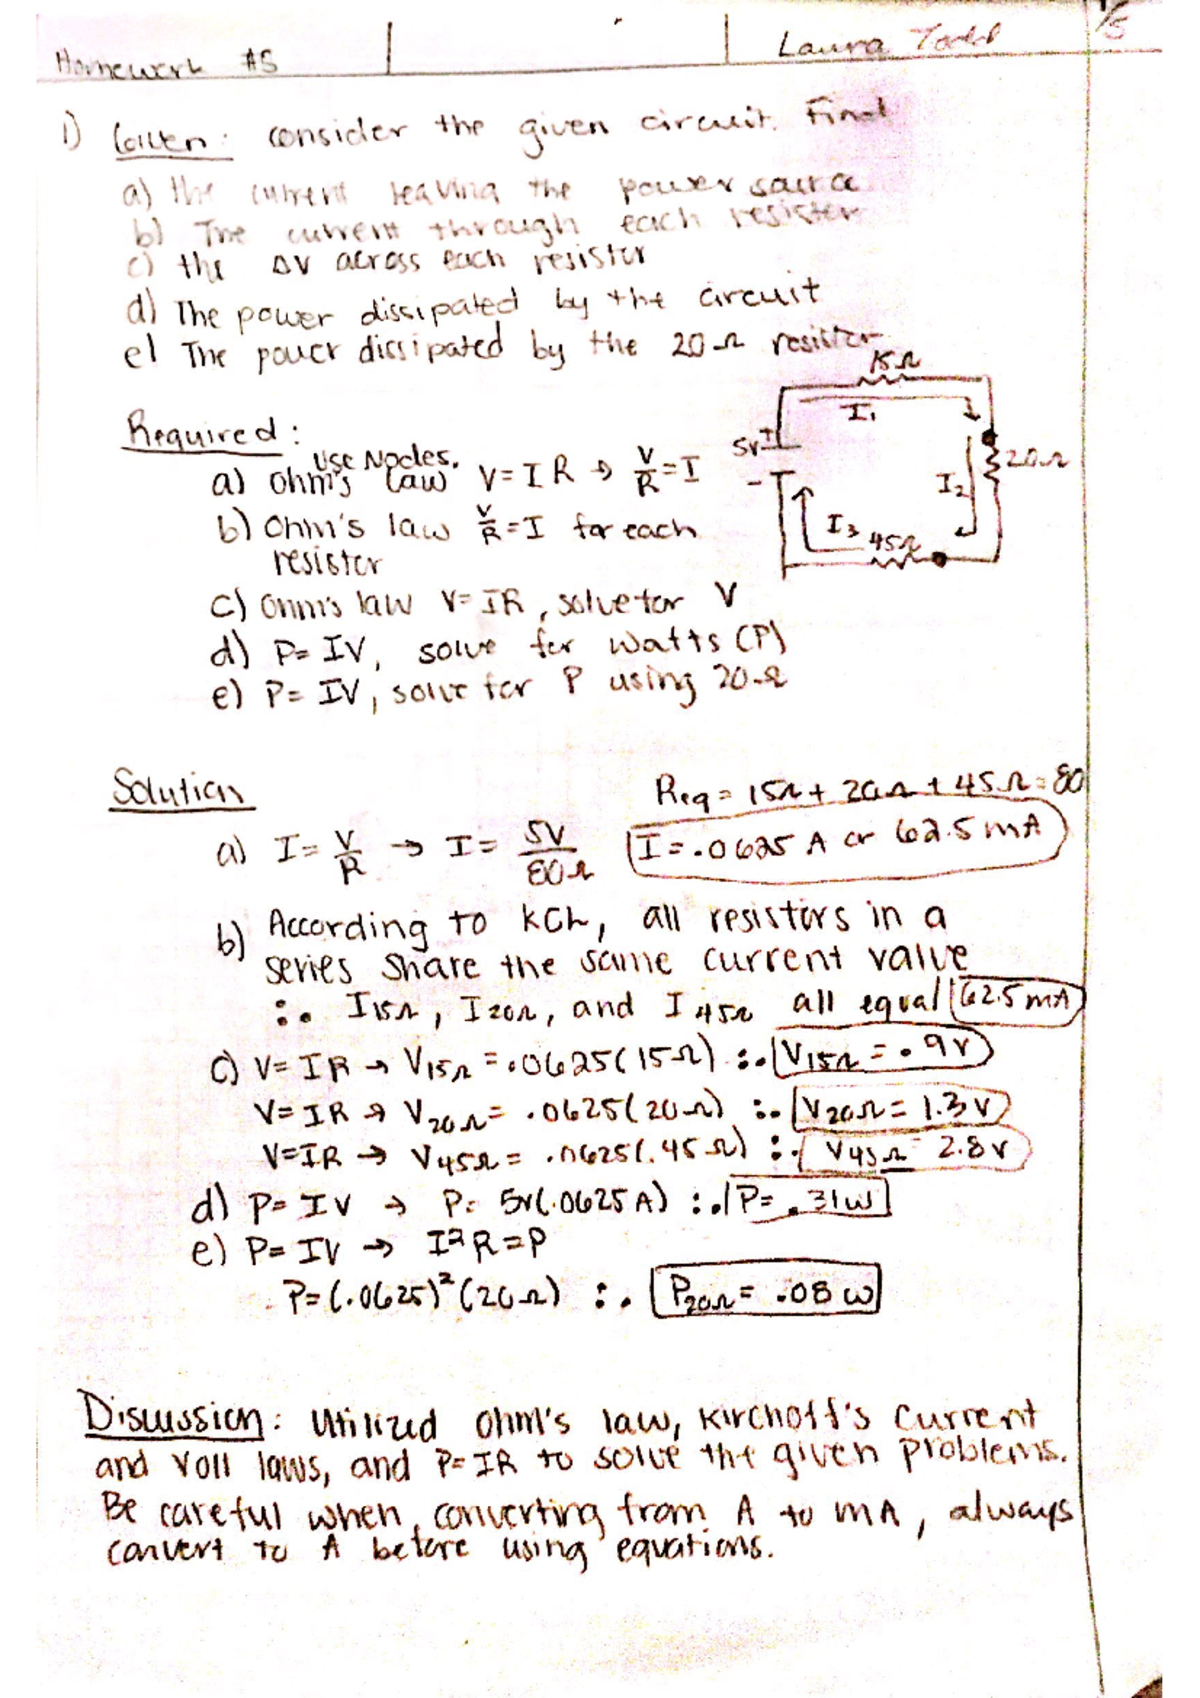 Homework #5 Laura Todd 1/5
1) Given: consider the given circuit. Find
a) the current leaving the power source
b) The current through each resister
c) the ΔV across each resistor
d) The power dissipated by the circuit
e) The power dissipated by the 20Ω resistor
15Ω
I₁
5V
+
-
20Ω
I₂
I₃
45Ω
Required:
Use Nodes.
a) ohm's Law V=IR → V/R=I
b) Ohm's law V/R=I for each
resister
c) Ohm's law V=IR, solve for V
d) P=IV, solve for Watts (P)
e) P=IV, solve for P using 20Ω
Solution
Req = 15Ω + 20Ω + 45Ω = 80
a) I= V/R → I= 5V/80Ω I=.0625 A or 62.5 mA
b) According to KCL, all resistors in a
series share the same current value
∴ I15Ω, I20Ω, and I45Ω all equal 62.5 mA
c) V=IR → V15Ω =.0625(15Ω) ∴ V15Ω = .9V
V=IR → V20Ω = .0625(20Ω) ∴ V20Ω = 1.3V
V=IR → V45Ω = .0625(.45Ω) ∴ V45Ω = 2.8V
d) P=IV → P= 5V(.0625A) ∴ P= .31W
e) P=IV → I²R=P
P=(.0625)²(20Ω) ∴ P20Ω = .08 W
Discussion: Utilized Ohm's law, Kirchoff's Current
and Volt laws, and P=IR to solve the given problems.
Be careful when converting from A to mA, always
convert to A before using equations.